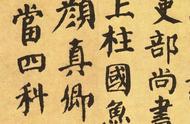 吏部尚書
上柱國
顏真卿
當四科